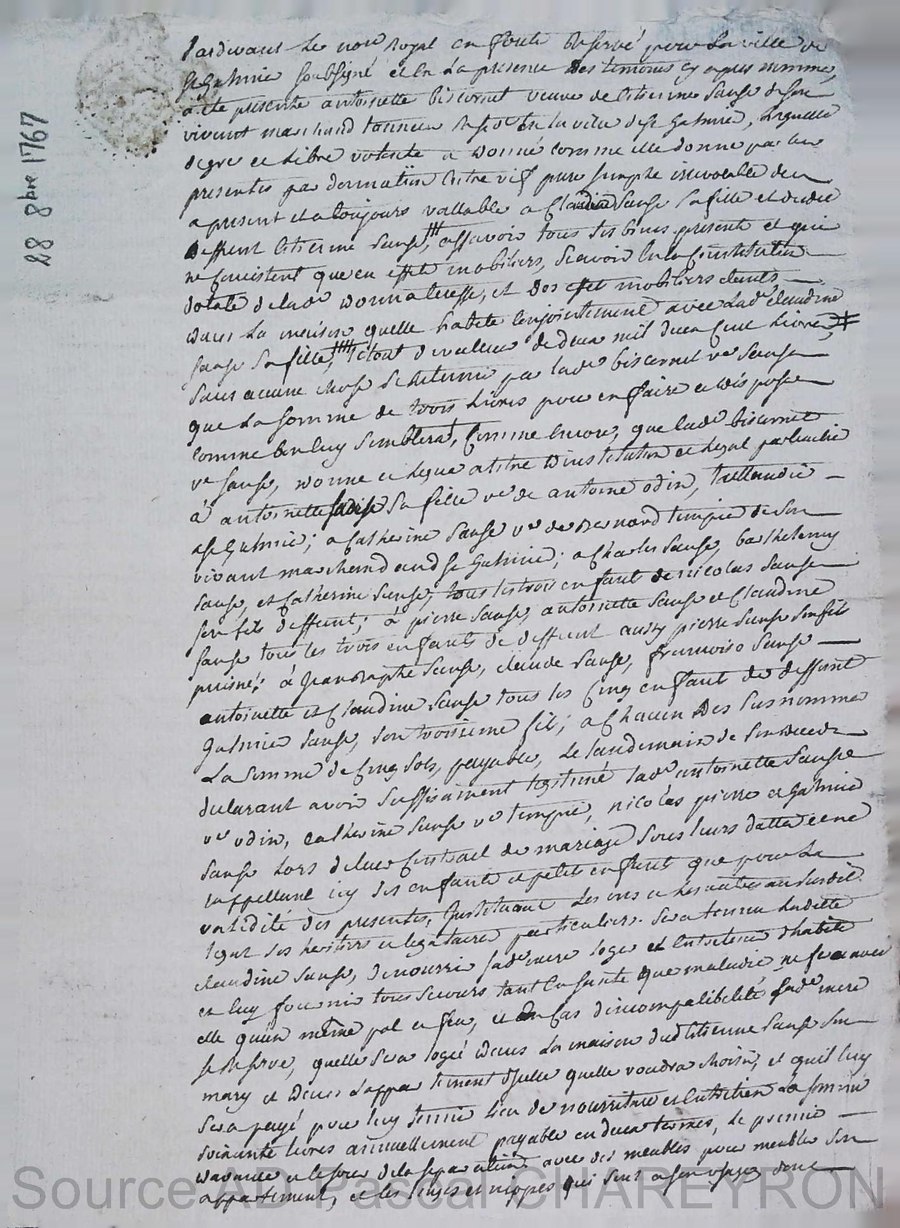 28 8bre 1767
Pardevant Le no.re Royal en forests Reservé pour La ville de
St Galmier soussigné et En La presence des temoins cy apres nommés
a eté presente antoinette biscornet veuve de Etienne Sauge de Son
vivant marchand tanneur en la ville de St Galmier, Laquelle
de gre et Libre volonté a donné comme elle donne par ces
presentes par donnation Entre vif pure simple irrevocable des
a present et a toujours vallable a Claudine Sauge Sa fille et dudit
deffunt Etienne Sauge, assavoir tous ses biens presents et qui
ne Consistent que en effets mobiliers, scavoir En la Constitution
dotale de lade donnateresse, et des effets mobiliers etants
dans La maison quelle habite Conjointement avec Lade Claudine
Sauge Sa fille, Le tout de valleur de deux mil deux Cent Livres,
Sans aucune chose se Retenir par lade biscornet ve Sauge
que La Somme de trois Livres pour en faire et disposer
comme bon luy Semblera, Comme Encore, que lade biscornet
ve Sauge, donne et legue a titre d'institution et legat particulier
à antoinette Sauge Sa fille ve de antoine odin, taillandier
a St Galmier; a Catherine Sauge ve de Bernard tempier de Son
vivant marchand aud St Galmier; a Charles Sauge, barthelemy
Sauge, et Catherine Sauge, tous les trois enfants de nicolas Sauge
Son fils deffunt; à pierre Sauge, antoinette Sauge et Claudine
Sauge tous les trois enfants de deffunt aussy pierre Sauge Son fils
puisné; à Sauge, claude Sauge, françois Sauge
antoinette et Claudine Sauge tous les Cinq enfants de deffunt
Galmier Sauge, Son troisieme fils; a Chacun des Susnommés
La Somme de Cinq Sols, payable, Le Landemain de Son deceds
declarant avoir Suffisament lade antoinette Sauge
ve odin, Catherine Sauge ve tempier, nicolas pierre et Galmier
Sauge Lors de leur Contract de mariage Sous leurs dattes et ne
rappellant icy ses enfants et petits enfants que pour La
validité des presentes, Instituant Les uns et Les autres au Susdit
legat Ses heritiers et legataires particuliers. Sera tenue Laditte
claudine Sauge, de nourrir Sade mere loger et Entretenir d'habits
et luy fournir tous Secours tant En Santé que maladie ne faire avec
elle qu'un même pot et feu, et En Cas d'incompatibilité Sade mere
Se Reserve, quelle Sera logée dans La maison dud Etienne Sauge Son
mary et dans L'appartement d'Icelle quelle voudra choisir, et qu'il luy
Sera payé pour luy tenir Lieu de nourriture et Entretien La Somme
Soixante livres annuellement payable en deux termes, Le premier
d'avance et le jour de la Separation avec des meubles pour meubler Son
appartement, et les linges et nippes qui Sont a Son usage dont
Source AD Pascal CHAREYRON